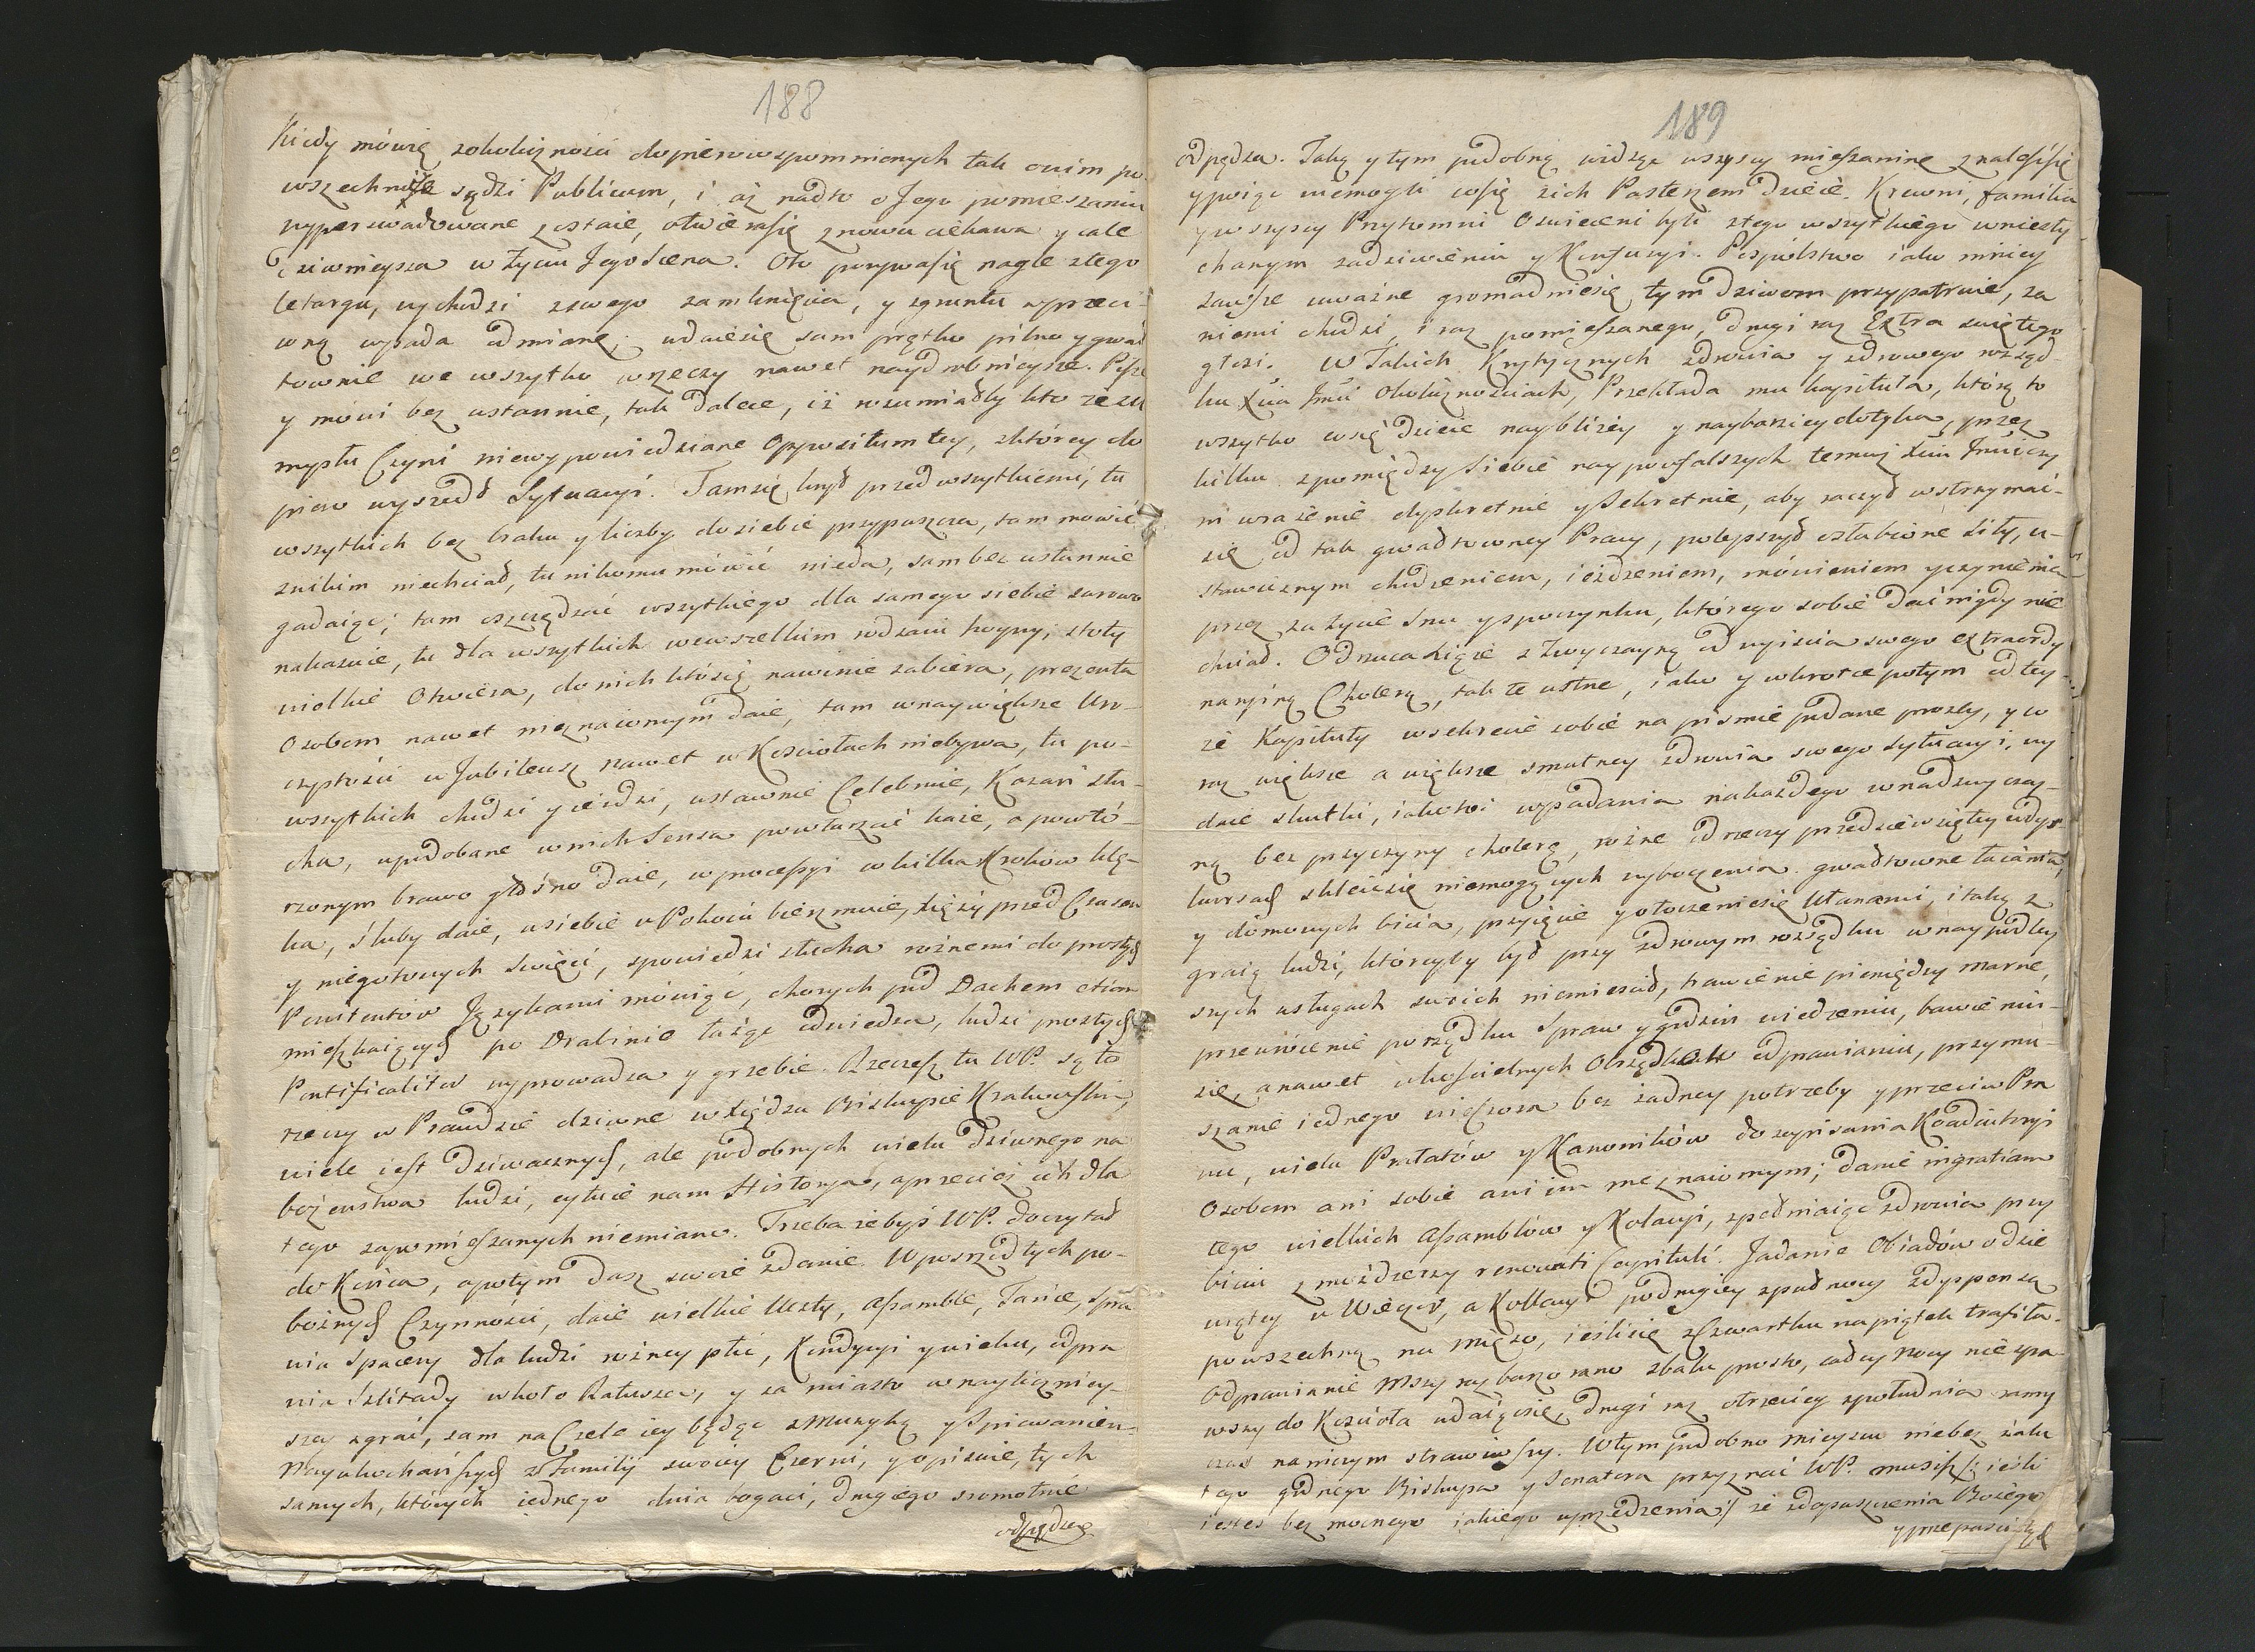 188
Kiedy mówię zokoliczności dopierowspomnionych tak onim po
wszechnie sądzi Publicum, i aż nadto o Jego pomieszaniu
wyperswadowane zostaie, otwierasię znowu ciekawa y cale
dziwnieysza w życiu Jego Scena. Oto porywasię nagle ztego
letargu, wychodzi zswego zamknięcia, y zgruntu wprzeci-
wną wpada odmianę; udaiesię sam prętko pilno y gwał
townie we wszytko wrzeczy nawet naydrobnieysze. Pisze
y mówi bez ustannie, tak dalece, iż rozumiałby kto że zu
mysłu Czyni niewypowiedziane Oppositum tey, zktórey do
piero wyszedł Sytuacyi. Tamsię krył przed wszytkiemi, tu
wszytkich bez braku y liczby do siebie przypuszcza, tam mówić
znikim niechciał, tu nikomu mówić nieda, sam bez ustannie
gadaiąc; tam oszczędzać wszytkiego dla samego siebie surowo
nakazuie, tu dla wszytkich wewszelkim rodzaiu hoyny, stoły
wielkie Otwiera, do nich ktosię nawinie zabiera, prezenta
Osobom nawet nieznaiomym daie, tam wnaywiększe Uro-
czystości w Jubileusz nawet w Kosciołach niebywa, tu po-
wszytkich chodzi y ieździ, ustawnie Celebruie, Kazań słu-
cha, upodobane wnich Sensa powtarzać każe, a powtó-
rzonym brawo głośno daie, w processyi w kilka Kroków klę-
ka, śluby daie, usiebie w Pokoiu bierzmuie, Xięży przed Czasem
y niegotowych święci, spowiedzi słucha rożnemi do prostych
Penitentów Językami mówiąc, chorych pod Dachem etiam
mieszkaiących po Drabinie łażąc odwiedza, ludzi prostych
Pontificaliter wyprowadza y grzebie. Rzeczesz tu WP. są to
rzeczy w Prawdzie dziwne w Xiędzu Biskupie Krakowskim,
wiele iest dziwacznych, ale podobnych wielu dziwnego na
bożeństwa ludzi, cytuie nam Historya, a przecież ich dla
tego zapomieszanych niemiano. Trzeba żebyś WP. doczytał
do Końca, apotym dasz swoie zdanie. W posrzód tych po-
bożnych Czynności, daie wielkie Uczty, Assamble, Tańce, Spra
wia Spacery dla ludzi rożney płci, Kondycyi y wieku, odpra
wia Szlitady wkoło Ratusza, y za miasto w naylicznie y-
szey zgrai, sam na Czele iey będąc z Muzyką y Spiewaniem
Nayukochańszych z Familij swoiey Czerni, y opisuie, tych
samych, których iednego dnia bogaci, drugiego sromotnie
odpędza
189
odpędza. Taką y tym podobną widząc wszyscy mieszaninę znalesćsię
ypoiąć niemogli cosię zich Pasterzem dzieie. Krewni, familia
y wszyscy Przytomni Oswieceni byli ztego wszytkiego wniesły
chanym zadziwieniu y Konfuzyi. Pospolstwo iako mniey
zawsze uważne gromadniesię tym dziwom przypatruie, za
niemi chodzi, i raz pomieszanego, drugi raz Extra swiętego
głosi. W Takich Krytycznych zdrowia y zdrowego rozsąd-
ku Xcia Jmci Okolicznościach, Przekłada mu kapituła, którą to
wszytko cosię dzieie naybliżey y naybarziey dotyka, przez
kilku zpomiędzy siebie naypoufalszych temuż Xciu Jmci czy
ni urażenie dyskretnie y Sekretnie, aby raczył wstrzymać-
się od tak gwałtowney Pracy, polepszył osłabione siły, u-
stawicznym chodzeniem, ieżdzeniem, mówieniem yczynienia
przez zażycie snu yspoczynku, którego sobie dać nigdy nie
chciał. Odrzuca Xiąże zzwyczayną od wyiścia swego extraordy
naryiną Cholerą, tak te ustne, iako y wkrotce potym od tey-
że Kapituły w sekrecie sobie na pismie podane prożby, y co
raz większe a większe smutney zdrowia swego sytuacyi, wy
daie skutki, iakoto: wypadania nakażdego wnadzwyczay-
ną bez przyczyny cholerę, rożne od rzeczy przedsiewziętey w dys-
kursach skleićsię niemogących wyboczenia. gwałtowne łaiania,
y domowych bicia, przyięcie y otoczeniesię Ułanami, i taką z
graią ludzi, którzyby był przy zdrowym rozsądku w naypodley
szych usługach swoich niemieścił, trawienie pieniędzy marne,
przewrócenie porządku Spraw y godzin wiedzeniu, bawieniu-
się, anawet wkościelnych Obrządkach odprawianiu, przymu-
szanie iednego wieczora bez żadney potrzeby y przeciw Pra
wu, wielu Prałatów y Kanoników do zapisania Koadiutoryi
Osobom ani sobie ani im nieznaiomym; danie ingratiam
tego wielkich Assamblów y Kolacyi, zpełniaiąc zdrowia przy
biciu z moździerzy renovati Capituli. Jadanie Obiadów o dzie
wiątey w Wieczor, a Kollacyi podrugiey zpułnocy zdyspensą
powszechną na mięso, ieślisię zCzwartku na piątek trafiła.
Odprawianie Mszy raz barzo rano zbalu prosto, całey nocy niespa
wszy do Kościoła udaiącsię, drugi raz otrzeciey zpołudnia ranny
czas naniczym strawiwszy. Wtym podobno mieyscu niebez żalu
tego godnego Biskupa y Senatora przyznać WP. musisz /: ieśli
iestes bez mocnego iakiego uprzedzenia :/ że zdopuszczenia Bożego
y przepasci tych